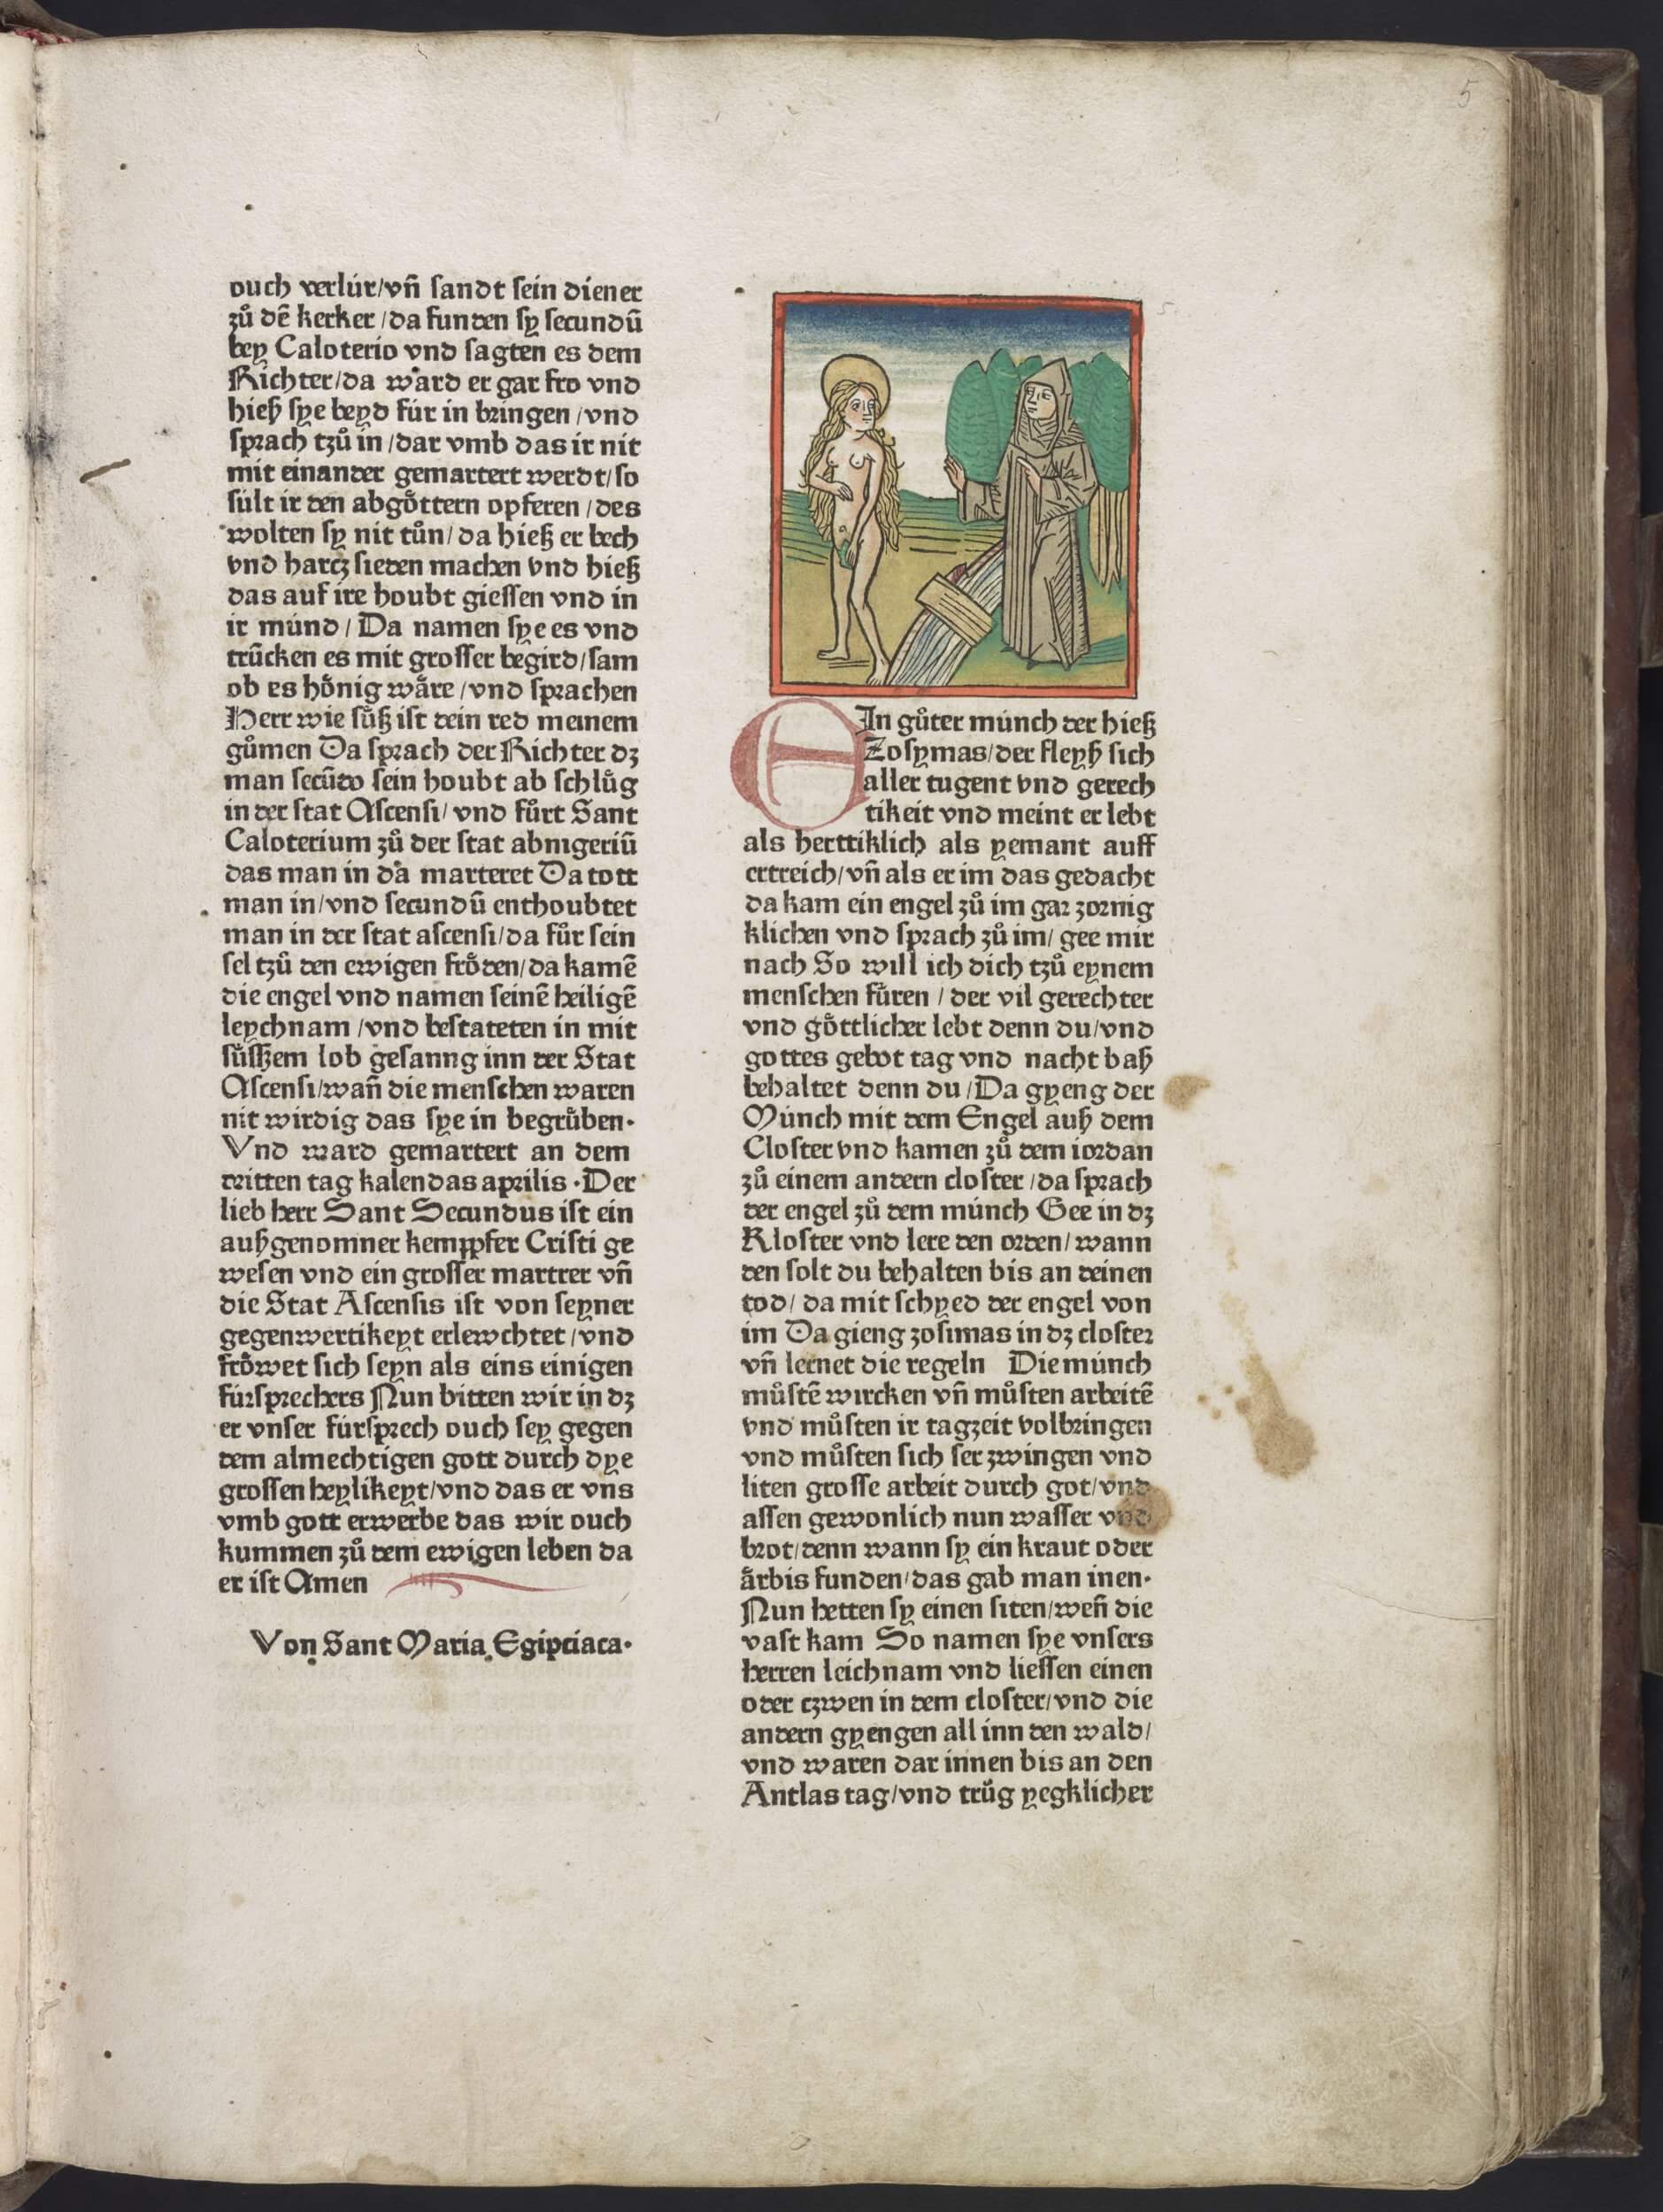 5
ouch verlúr/vñ sandt sein diener
zů dē kerker /da funden sy secundū
bey Caloterio vnd sagten es dem
Richter/da ward er gar fro vnd
hieß sye beyd für in bringen /vnd
sprach tzů in /dar vmb das ir nit
mit einander gemartert werdt/so
sült ir den abgöttern opferen /des
wolten sy nit tůn/ da hieß er bech
vnd harcz sieden machen vnd hieß
das auf ire houbt giessen vnd in
ir münd / Da namen sye es vnd
trūcken es mit grosser begird/sam
ob es hönig wäre /vnd sprachen
Herr wie sůß ist dein red meinem
gůmen Da sprach der Richter dz
man secūdo sein houbt ab schlůg
in der stat Ascensi/ vnd fůrt Sant
Caloterium zů der stat abnigeriū
das man in da marteret Da tott
man in/vnd secundū enthoubtet
man in der stat ascensi/da fůr sein
sel tzů den ewigen fröden/da kamē
die engel vnd namen seinē heiligē
leychnam /vnd bestateten in mit
sůßem lob gesanng inn der Stat
Ascensi/wañ die menschen waren
nit wirdig das sye in begrůben·
Vnd ward gemartert an dem
dritten tag kalendas aprilis ·Der
lieb herr Sant Secundus ist ein
außgenomner kemppfer Cristi ge
wesen vnd ein grosser martrer vñ
die Stat Ascensis ist von seyner
gegenwertikeyt erlewchtet /vnd
fröwet sich seyn als eins einigen
fürsprechers Nun bitten wir in dz
er vnser fürsprech ouch sey gegen
dem almechtigen gott durch dye
grossen heylikeyt/vnd das er vns
vmb gott erwerbe das wir ouch
kummen zů dem ewigen leben da
er ist Amen
Von Sant Maria Egipciaca·
EIn gůter münch der hieß
Zosymas/der fleyß sich
aller tugent vnd gerech
tikeit vnd meint er lebt
als herttiklich als yemant auff
ertreich/vñ als er im das gedacht
da kam ein engel zů im gar zornig
klichen vnd sprach zů im/ gee mir
nach So will ich dich tzů eynem
menschen fůren / der vil gerechter
vnd göttlicher lebt denn du/vnd
gottes gebot tag vnd nacht baß
behaltet denn du /Da gyeng der
Münch mit dem Engel auß dem
Closter vnd kamen zů dem iordan
zů einem andern closter /da sprach
der engel zů dem münch Gee in dz
Kloster vnd lere den orden/ wann
den solt du behalten bis an deinen
tod/ da mit schyed der engel von
im Da gieng zosimas in dz closter
vñ lernet die regeln Die münch
můstē wircken vñ můsten arbeitē
vnd můsten ir tagzeit volbringen
vnd můsten sich ser zwingen vnd
liten grosse arbeit durch got/vnd
assen gewonlich nun wasser vnd
brot/denn wann sy ein kraut oder
ärbis funden/das gab man inen·
Nun hetten sy einen siten/weñ die
vast kam So namen sye vnsers
herren leichnam vnd liessen einen
oder czwen in dem closter/vnd die
andern gyengen all inn den wald/
vnd waren dar innen bis an den
Antlas tag/vnd trůg yegklicher